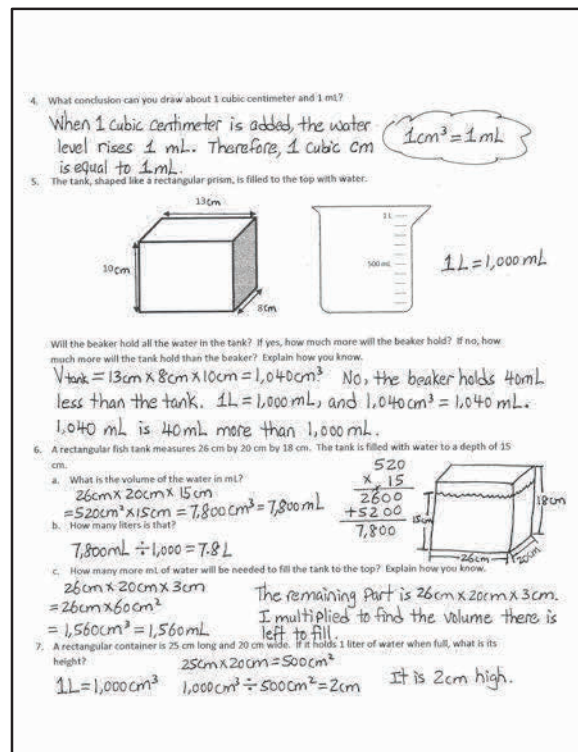 4. What conclusion can you draw about 1 cubic centimeter and 1 mL?
When 1 cubic centimeter is added, the water
level rises 1 mL. Therefore, 1 cubic cm
is equal to 1 mL.
1cm³ = 1mL
5. The tank, shaped like a rectangular prism, is filled to the top with water.
13cm
10cm
8cm
1 L
500 mL
1L = 1,000 mL
Will the beaker hold all the water in the tank? If yes, how much more will the beaker hold? If no, how
much more will the tank hold than the beaker? Explain how you know.
Vtank = 13cm x 8cm x 10cm = 1,040cm³ No, the beaker holds 40mL
less than the tank. 1L = 1,000 mL, and 1,040cm³ = 1,040 mL.
1,040 mL is 40mL more than 1,000 mL.
6. A rectangular fish tank measures 26 cm by 20 cm by 18 cm. The tank is filled with water to a depth of 15
cm.
a. What is the volume of the water in mL?
26cm x 20cm x 15cm
= 520cm² x 15cm = 7,800cm³ = 7,800mL
520
x 15
2600
+5200
7,800
18cm
15cm
26cm
20cm
b. How many liters is that?
7,800mL ÷ 1,000 = 7.8L
c. How many more mL of water will be needed to fill the tank to the top? Explain how you know.
26cm x 20cm x 3cm
= 26cm x 60cm²
= 1,560cm³ = 1,560mL
The remaining part is 26cm x 20cm x 3cm.
I multiplied to find the volume there is
left to fill.
7. A rectangular container is 25 cm long and 20 cm wide. If it holds 1 liter of water when full, what is its
height?
25cm x 20cm = 500cm²
1L = 1,000cm³ 1,000cm³ ÷ 500cm² = 2cm It is 2cm high.